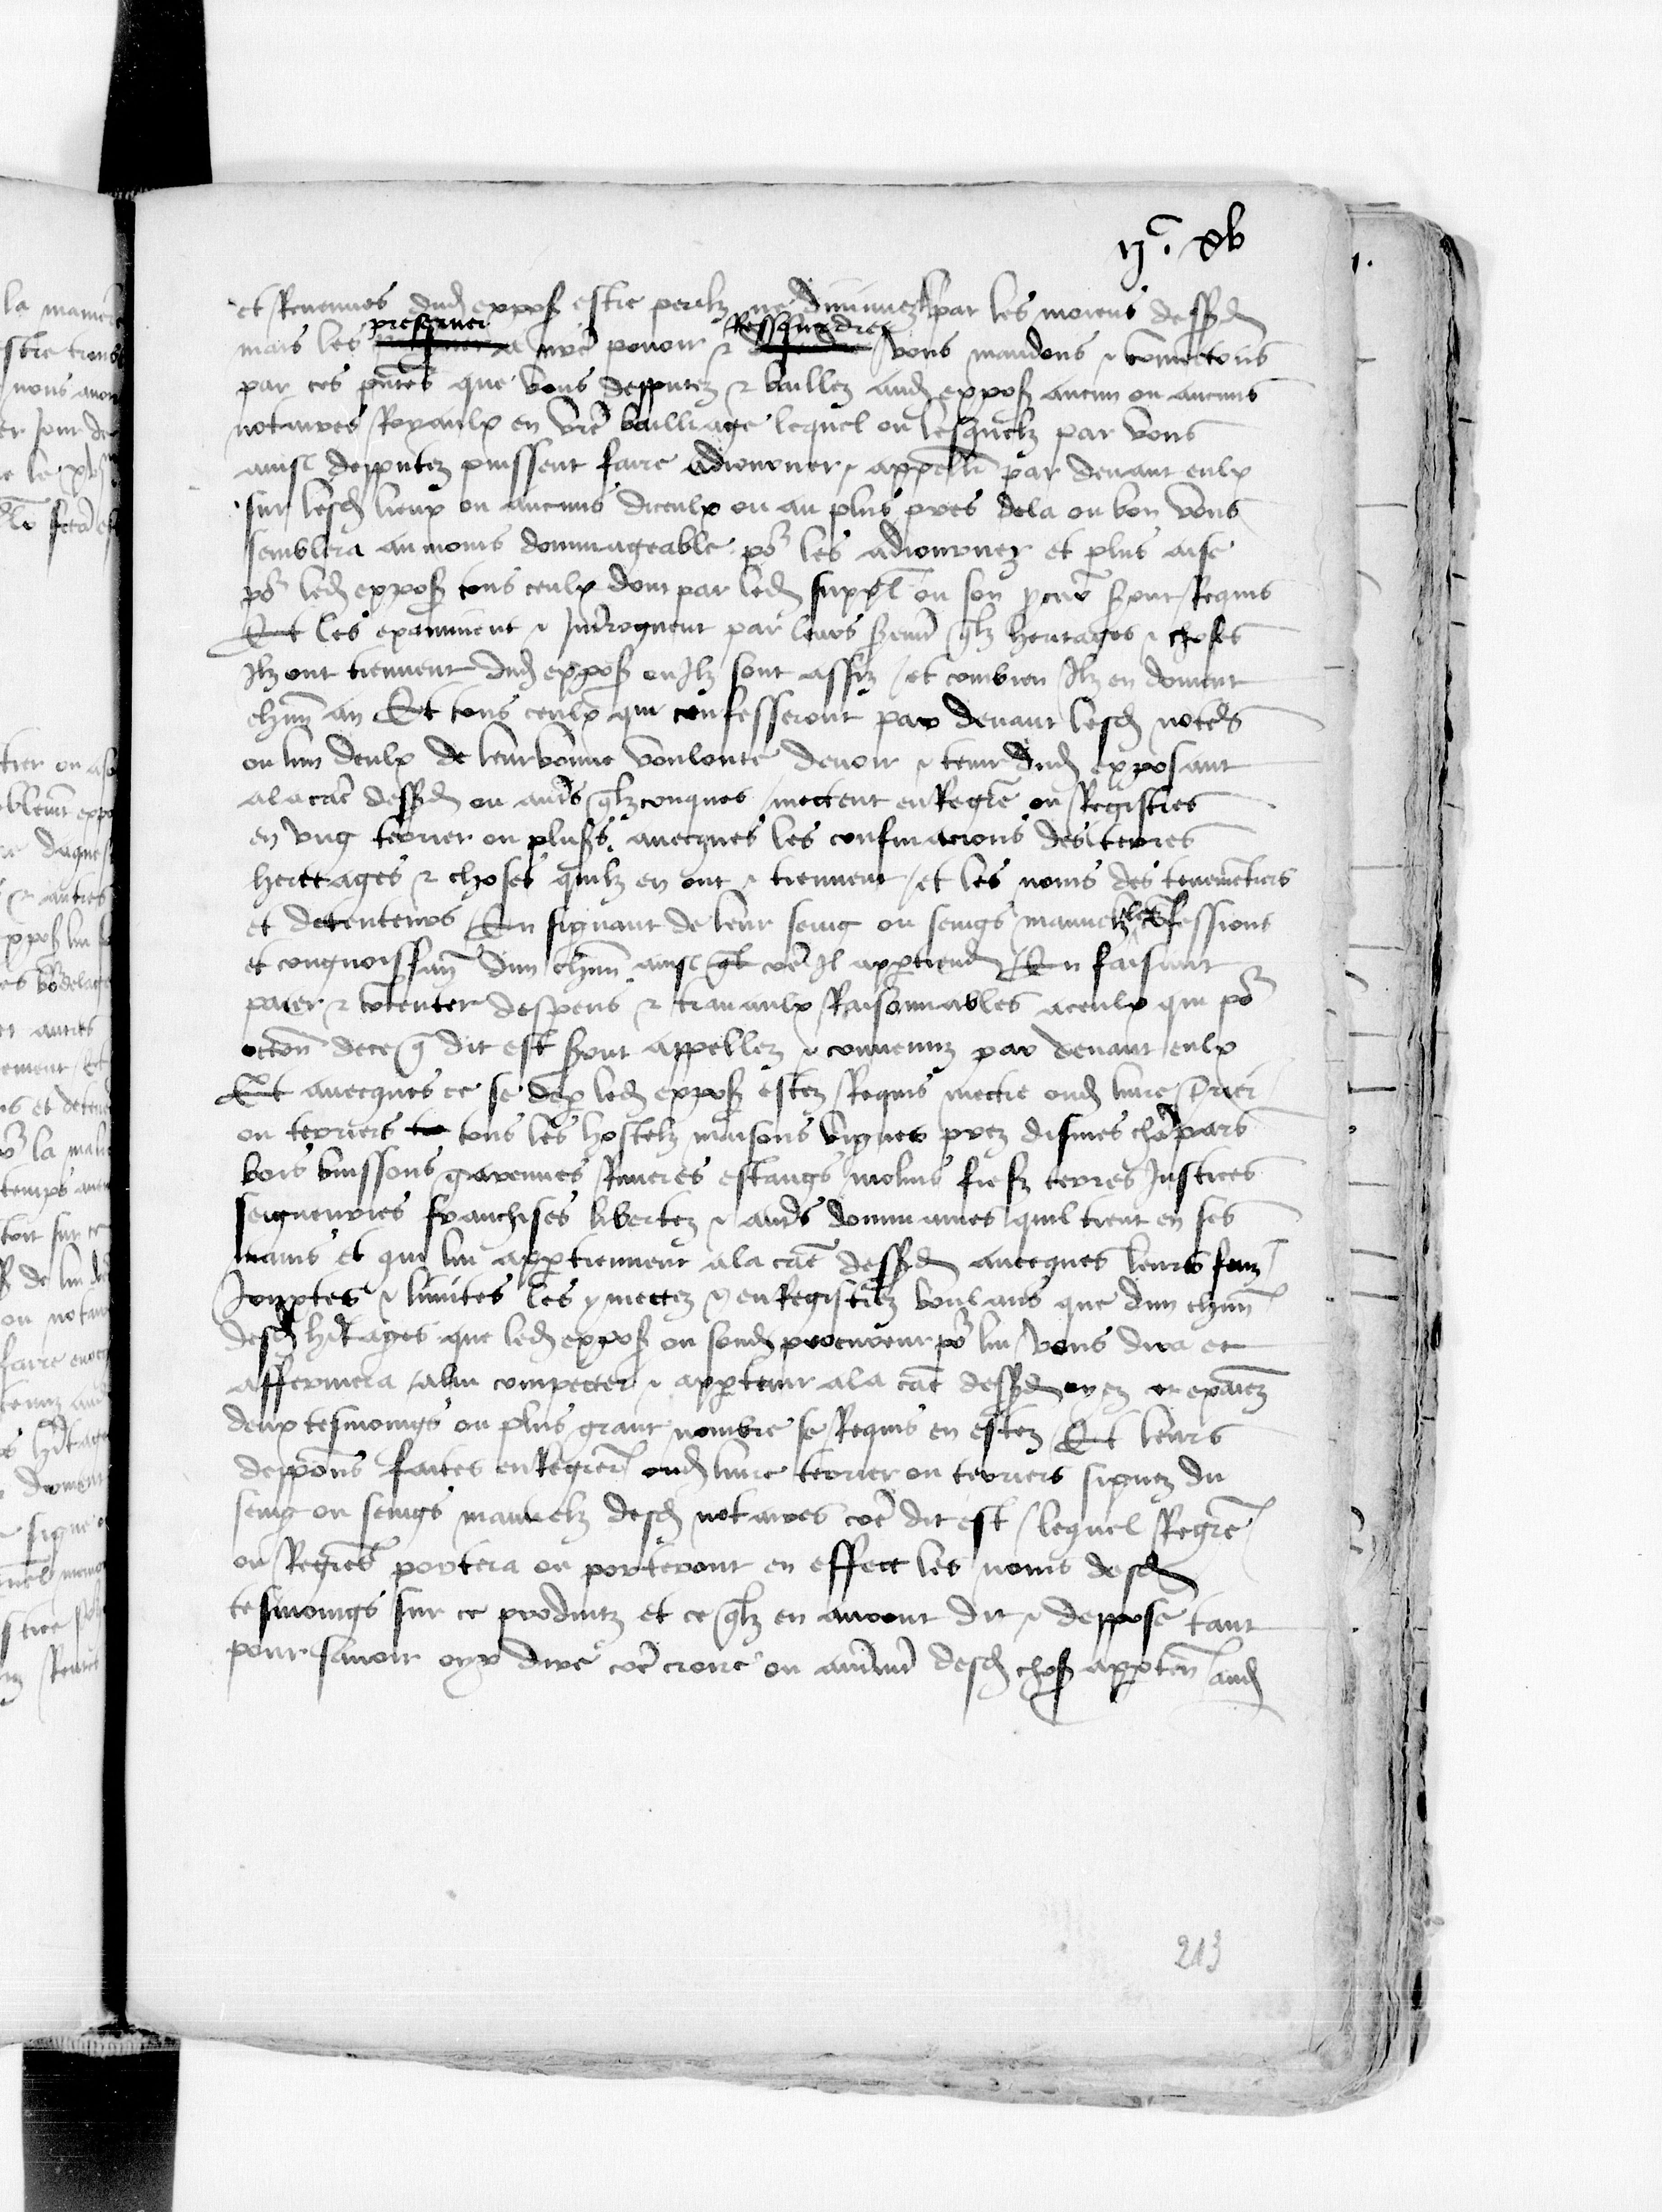 ijc. xv
et Revenues dud expos estre periliz ne diminuez par les moiens dessusd
preserver Ressourdre
mais les a nre povoir & vous mandons & commectons
par ces pntes que vous depputez & baillez aud expos aucun ou aucuns
notaires Royaulx en vre bailliage lequel ou lesquelz par vous
ainsi depputez puissent faire adiourner & appeller par devant eulx
sur lesd lieux ou aucuns diceulx ou au plus pres dela ou bon vous
semblera au moins dommageable por les adiournez et plus aise
por led expos tous ceulx dont par led suppl ou son pcur seront Requis
Et les examinent & Interroguent par leurs serment qlz heritages & choses
Ilz ont tiennent dud expos ou Ilz sont assiz et combien Ilz en doivent
chun an Et tous ceulx qui confesseront par devant lesd notes
ou lun deulx de leur bonne voulonte devoir & tenir dud exposant
ala cae dessusd ou autres qlzconques mectent en Regre ou Registres
en ung terrier ou plusrs avecques les confinacions des terres
heritages & choses quilz en ont & tiennent et les noms des tenementiers
et detenteurs En signant de leur seing ou seings manuelz les confessions
et congnoissan dun chun ainsi que coe Il appartiend En faisant
paier & contenter despens & travaulx Raisonnables a ceulx qui por
occon dece q dit est seront appellez & convenuz par devant eulx
Et avecques ce se de par led expos estes Requis mectre oud livre terrier
ou terriers tous les hostelz maisons vignes prez dismes champars
bois buissons garennes Rivieres estangs molins fiefz terres Justices
seigneuries franchises libertez & autres dommaines quil tient en ses
mains et qui lui appartiennent ala cae dessusd avecques leurs fins
Jouxtes & limites les y mectez & enRegistrez voulans que dun chun
desd heritages que led expos ou sond procureur por lui vous dira et
affermera alui compecter & appartenir ala cae dessusd oyez et examinez
deux tesmoings ou plus grant nombre se Requis en estes Et leurs
depposicions faites enRegrer oud livre terrier ou terriers signez du
seing ou seings manuelz desd notaires coe dit est lequel Regre
ou Regres portera ou porteront en effect les noms desd
tesmoings sur ce produitz et ce qlz en auront dit & deppose tant
pour savoir oyr dire coe croire ou autrement desd chos apparten aud
213